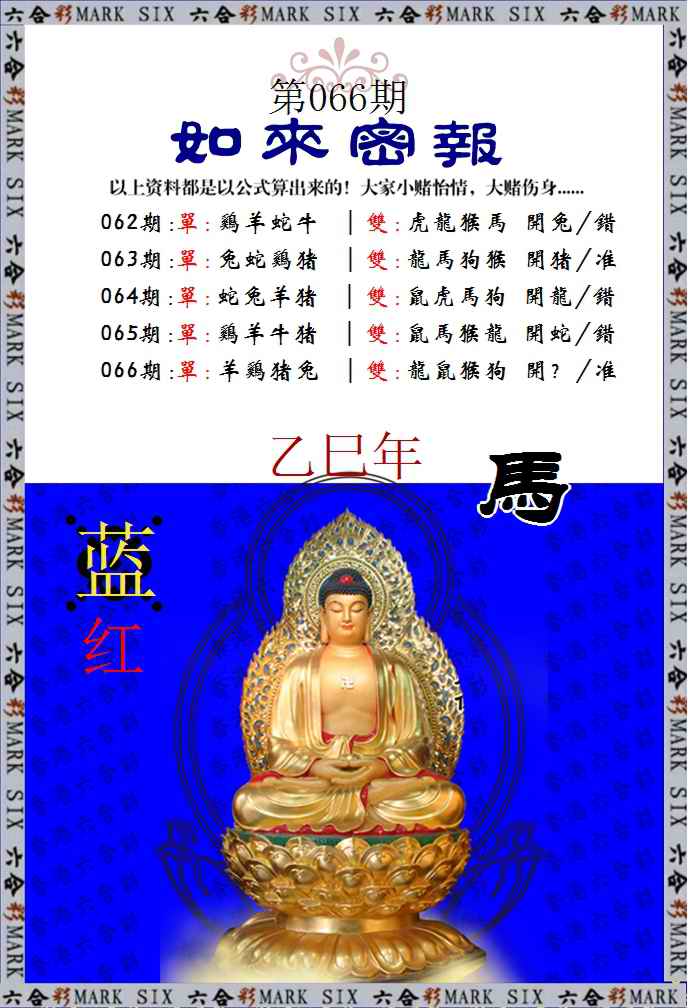 六合彩MARK SIX 六合彩MARK SIX 六合彩MARK SIX 六合彩MARK SIX 六合彩MARK SIX
第066期
如來密報
以上资料都是以公式算出来的！大家小赌怡情，大赌伤身......
062期:單:鷄羊蛇牛 | 雙:虎龍猴馬 開兔/錯
063期:單:兔蛇鷄猪 | 雙:龍馬狗猴 開猪/准
064期:單:蛇兔羊猪 | 雙:鼠虎馬狗 開龍/錯
065期:單:鷄羊牛猪 | 雙:鼠馬猴龍 開蛇/錯
066期:單:羊鷄猪兔 | 雙:龍鼠猴狗 開?/准
乙巳年
馬
蓝
红
六合彩MARK SIX 六合彩MARK SIX 六合彩MARK SIX 六合彩MARK SIX 六合彩MARK SIX